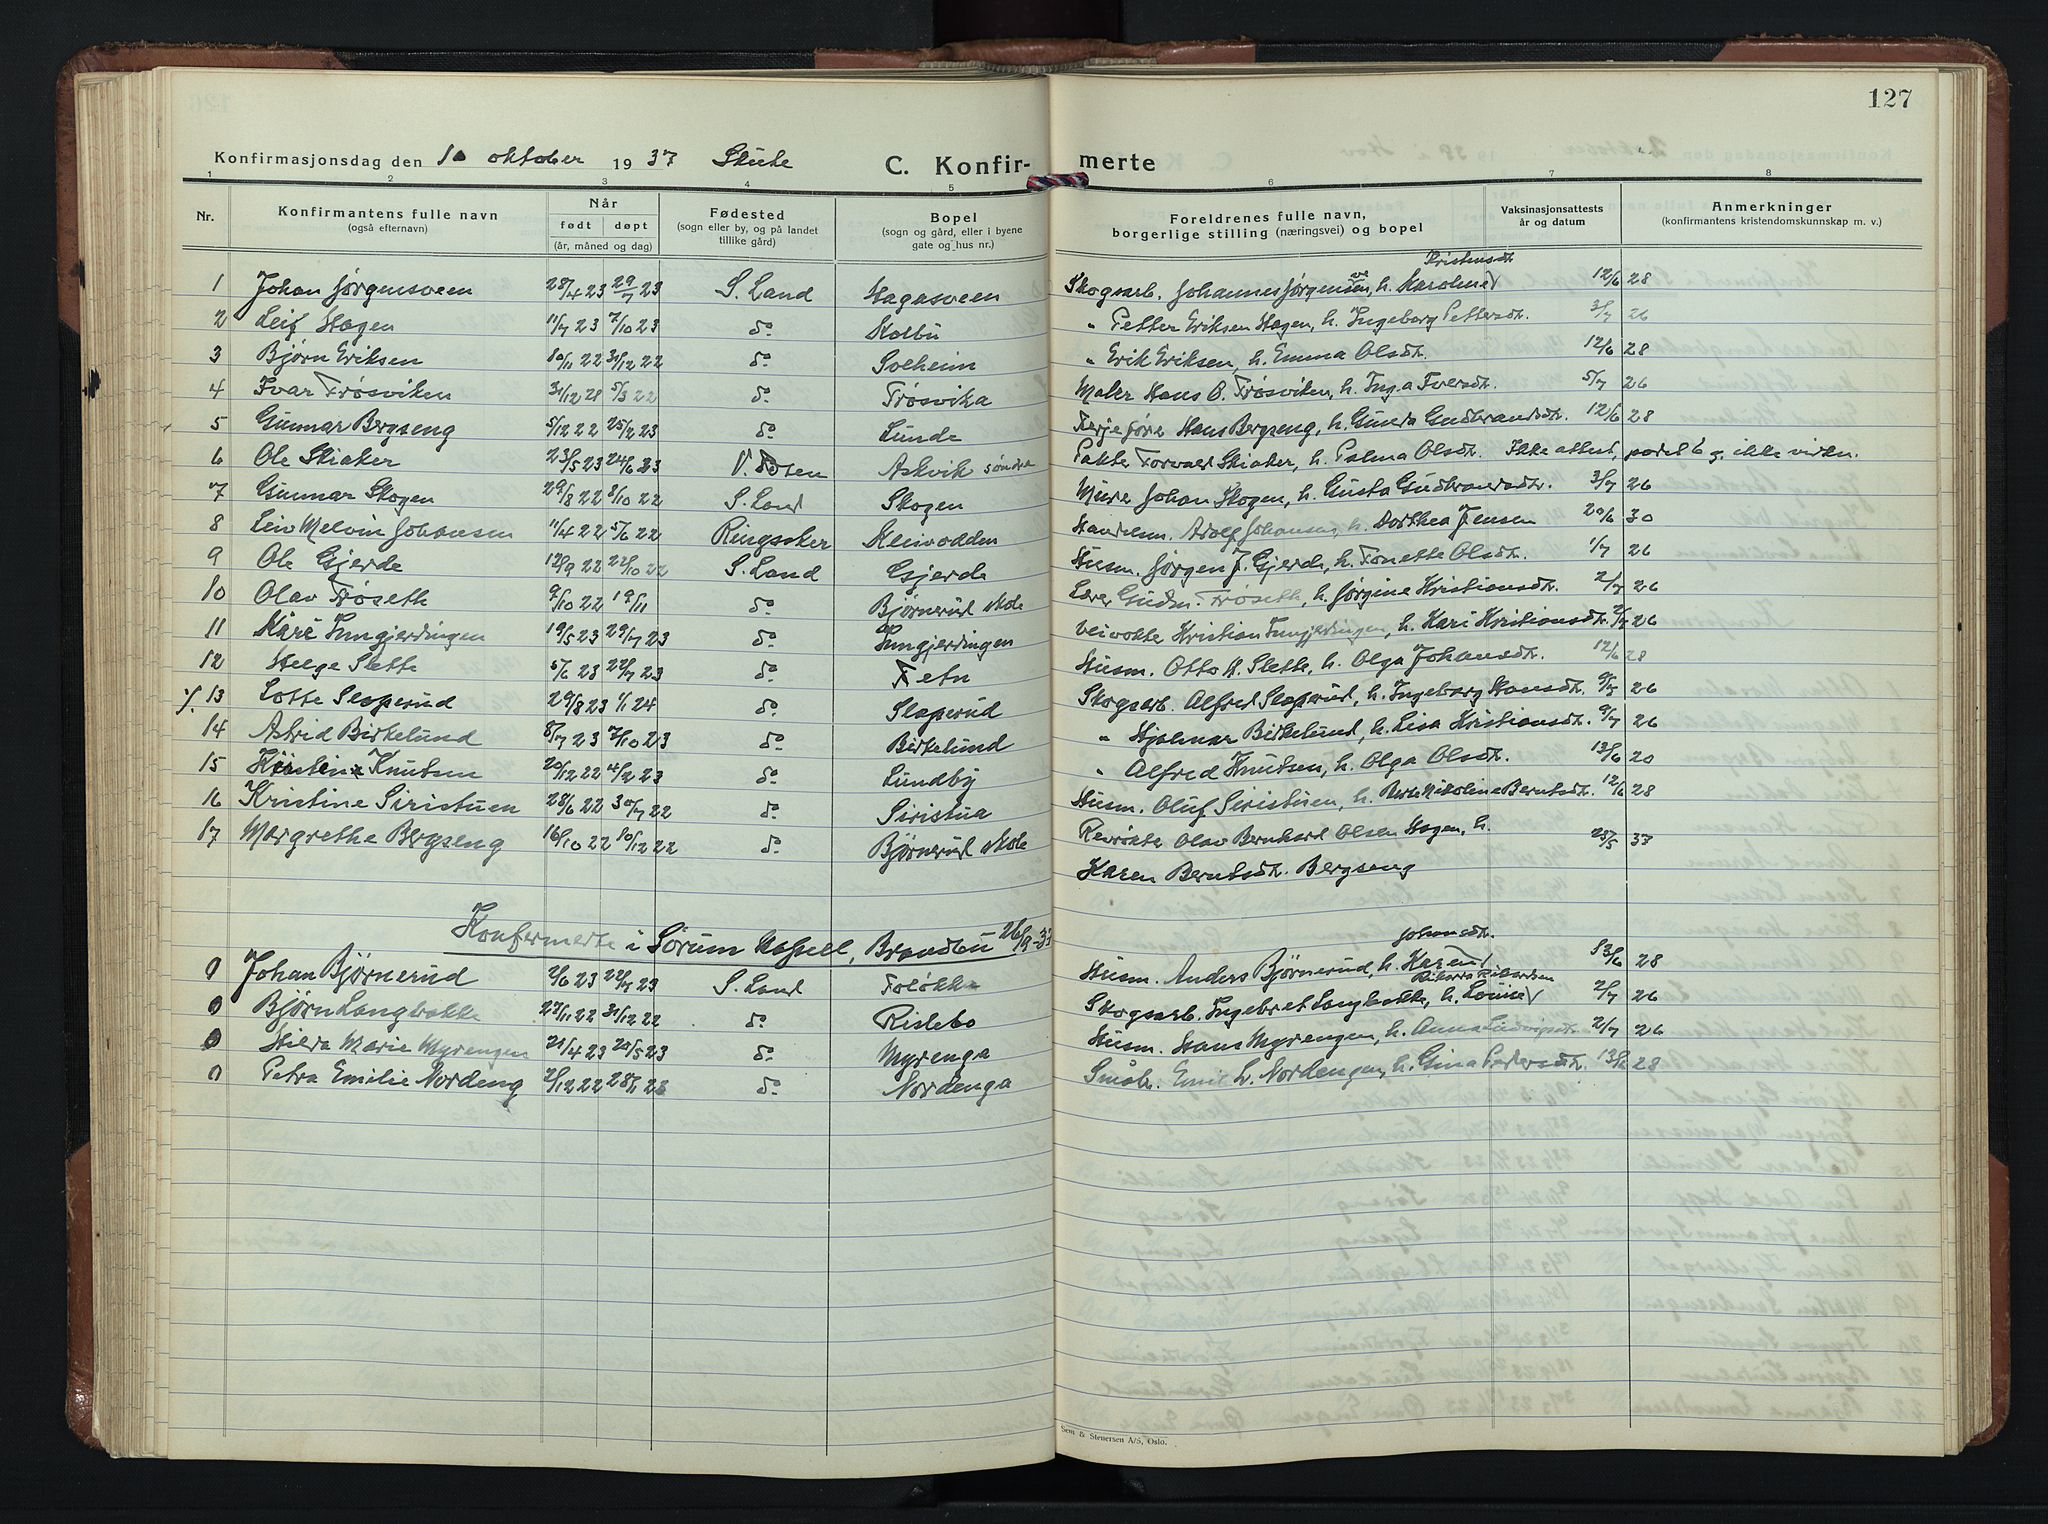 127
Konfirmasjonsdag den 10 oktober 1937 Skute C. Konfir- merte
1 2 3 4 5 6 7 8
Nr. Konfirmantens fulle navn (også efternavn) Når født døpt (år, måned og dag) Fødested (sogn eller by, og på landet tillike gård) Bopel (sogn og gård, eller i byene gate og hus nr.) Foreldrenes fulle navn, borgerlige stilling (næringsvei) og bopel Vaksinasjonsattests år og datum Anmerkninger (konfirmantens kristendomskunnskap m. v.)
Kristensdt.
1 Johan Jørgensveen 28/4 23 29/7 23 S. Land Hagasveen Skogsarb. Johannes Jørgensveen, h. Karoline 12/6 28
2 Leif Hagen 11/7 23 7/10 23 do Kolbu " Petter Eriksen Hagen, h. Ingeborg Pettersdt. 3/7 26
3 Bjørn Eriksen 10/11 22 31/12 22 do Solheim " Erik Eriksen, h. Emma Olsdt. 12/6 28
4 Ivar Trøsviken 31/12 5/3 22 do Trøsvika Maler Hans O. Trøsviken, h. Inga Iversdt. 5/7 26
5 Gunnar Bergseng 5/12 22 25/2 23 do Lunde Hans Bergseng, h. Gunda Gudbrandsdt. 12/6 28
6 Ole Skiaker 23/5 23 24/6 23 V. Toten Askvik søndre Torvald Skiaker, h. Palma Olsdt. Ikke attest, podet 6 g. ikke virkn.
7 Gunnar Skogen 29/8 22 8/10 22 S. Land Skogen Murer Johan Skogen, h. Gusta Gudbrandsdt. 3/7 26
8 Leiv Melvin Johansen 11/4 22 5/6 22 Ringsaker Kleivodden Handelsm. Adolf Johansen, h. Dorthea Jensen 20/6 30
9 Ole Gjerde 12/9 22 22/10 22 S. Land Gjerde Husm. Jørgen J. Gjerde, h. Tonette Olsdt. 1/7 26
10 Olav Trøseth 9/10 22 19/11 do Bjørnerud skole Lærer Gudm. Trøseth, h. Jørgine Kristiansdt. 2/7 26
11 Kåre Inngjerdingen 19/5 23 29/7 23 do Inngjerdingen Veivokter Kristian Inngjerdingen, h. Kari Kristiansdt. 2/7 26
12 Helge Slette 5/6 23 22/7 23 do Fetn Husm. Otto H. Slette, h. Olga Johansdt. 12/6 28
13 Lotte Sloperud 29/8 23 1/1 24 do Sloperud Skogsarb. Alfred Sloperud, h. Ingeborg Hansdt. 9/7 26
14 Astrid Birkelund 8/7 23 7/10 23 do Birkelund " Hjalmar Birkelund, h. Lisa Kristiansdt. 9/7 26
15 Kirsten Knutsen 20/12 22 4/2 23 do Lundby " Alfred Knutsen, h. Olga Olsdt. 13/6 20
16 Kristine Siristuen 28/6 22 30/7 22 do Siristua Husm. Oluf Siristuen, h. Berte Nikoline Berntsdt. 12/6 28
17 Margrethe Bergseng 16/10 22 10/12 22 do Bjørnerud skole Revrøkter Olav Bernhard Olsen Hagen, h. 25/5 37
Karen Berntsdt. Bergseng
Konfermerte i Sørum kapell, Brandbu 26/9-37
Johansdt.
0 Johan Bjørnerud 2/6 23 22/7 23 S. Land Toløkka Husm. Anders Bjørnerud, h. Karen 13/6 28
Rikarda Rikardsen
0 Bjørn Langbakke 27/11 22 31/12 22 do Rislebo Skogsarb. Ingebret Langbakke, h. Louise 2/7 26
0 Hilda Marie Myrengen 21/4 23 20/5 23 do Myrenga Husm. Hans Myrengen, h. Anna Ludvigsdt. 2/7 26
0 Petra Emilie Nordeng 2/12 22 28/1 23 do Nordenga Småbr. Emil L. Nordengen, h. Gina Pedersdt. 13/6 28
Sem & Stenersen A/S, Oslo.